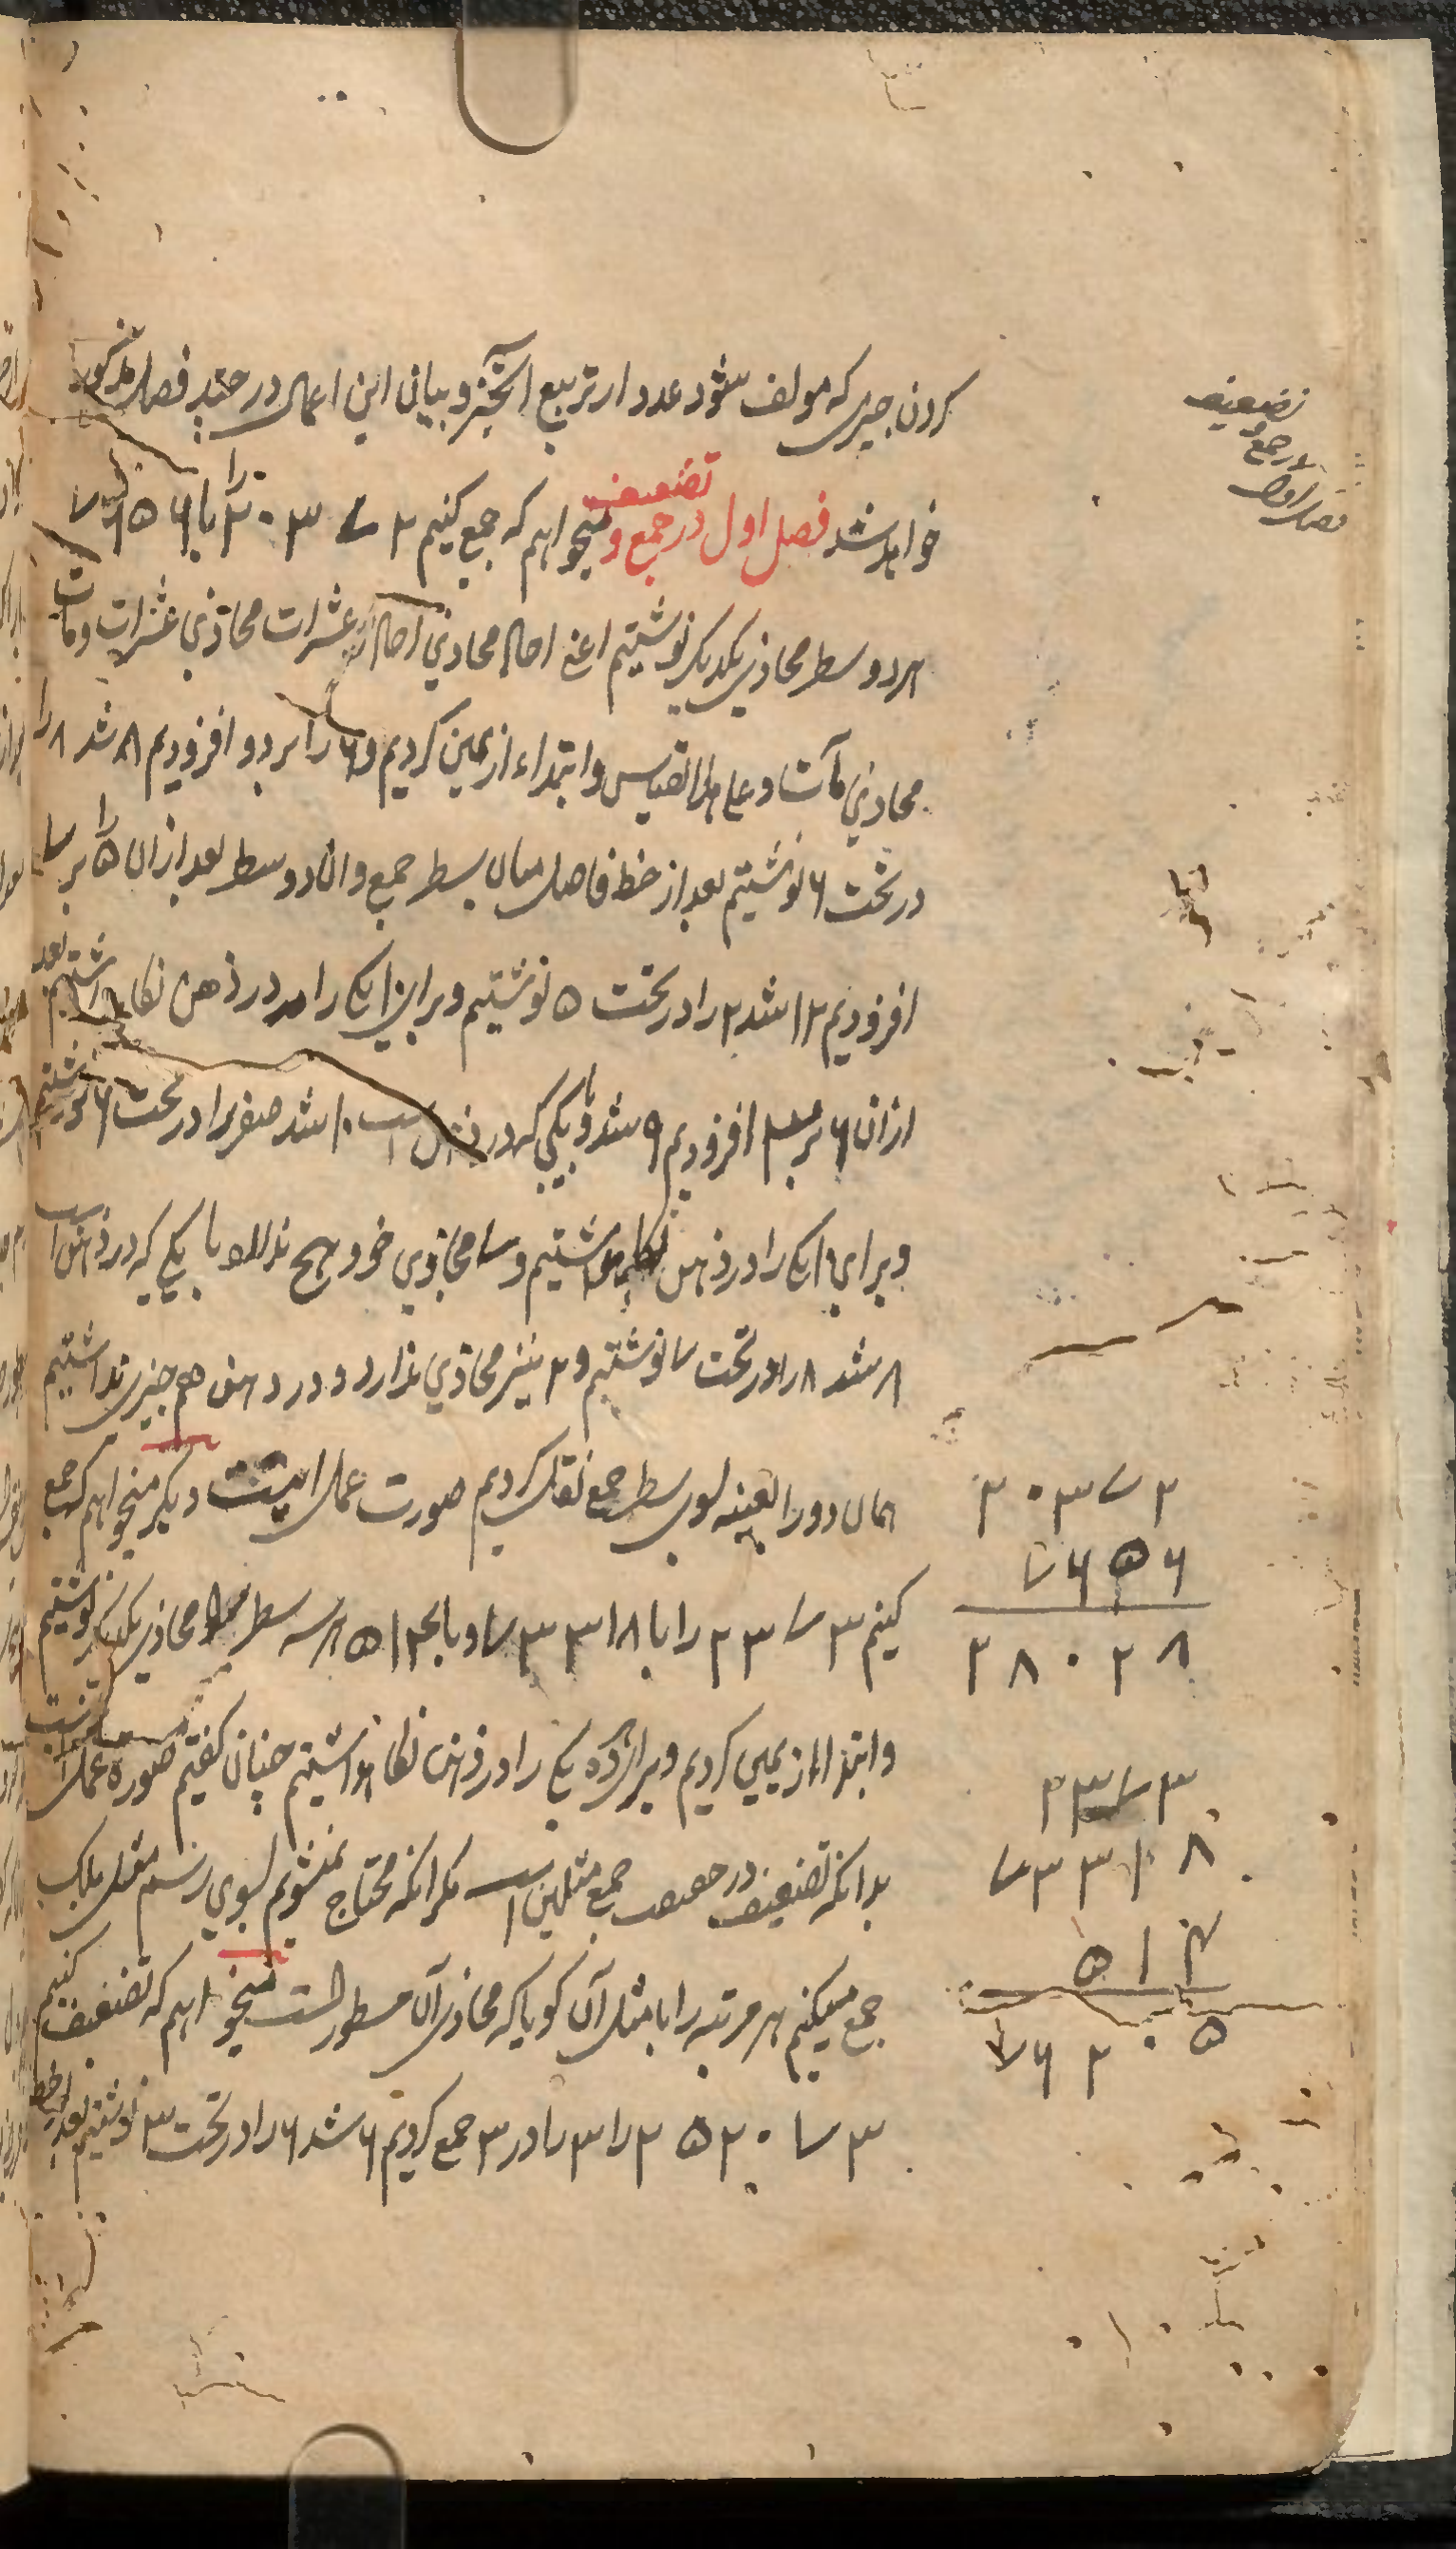 تضعیف
در جمع و
فصل اول
کردن چیزی که مولف شود عدد از تربیع آنچیز و بیان این اعمال در چند فصل مذکور
خواهد شد فصل اول در جمع و تضعیف میخواهم که جمع کنیم ۲ ۷ ۳ ۰ ۲ را با ۶ ۵ ۶ ۷
هر دو سطر محاذی یکدیگر نوشتیم اعنی احاد محاذی احاد و عشرات محاذی عشرات و مآت
محاذی مآت و علی هذا القیاس و ابتداء از یمین کردیم و ۶ را بر دو افزودیم ۸ شد ۸ را
در تحت ۶ نوشتیم بعد از خط فاصل میان سطر جمع و آن دو سطر بعد ازان ۵ را بر ۷
افزودیم ۱۲ شد ۲ را در تحت ۵ نوشتیم و برای ۱۰ یک را در ذهن نگاه داشتیم بعد
ازان ۶ بر ۳ افزودیم ۹ شد و با یکی که در ذهن است ۱۰ شد صفر را در تحت ۶ نوشتیم
و برای ۱۰ یک را در ذهن نگاه داشتیم و ۷ محاذی خود هیچ ندارد با یکی که در ذهن است
۸ شد ۸ را در تحت ۷ نوشتیم و ۲ نیز محاذی ندارد و در ذهن هم چیزی نداشتیم
همان دو را بعینه بسوی سطر جمع نقل کردیم صورت عمل اینست دیگر میخواهم که جمع
کنیم ۳ ۷ ۳ ۲ را با ۸ ۱ ۳ ۳ ۷ و با ۴ ۱ ۵ هر سه سطر محاذی یکدیگر نوشتیم
و ابتدا از یمین کردیم و برای ده یکی را در ذهن نگاه داشتیم چنانکه گفتیم صورة عمل اینست
بدانکه تضعیف در حقیقت جمع مثلین است مگر آنکه محتاج نمیشویم بسوی رسم مثل بلکه
جمع میکنیم هر مرتبه را با مثل آن گویا که محاذی آن مسطور است میخواهم که تضعیف کنیم
۳ ۷ ۰ ۲ ۵ ۲ را ۳ را در ۳ جمع کردیم ۶ شد ۶ را در تحت ۳ نوشتیم بعد خط
۲ ۷ ۳ ۰ ۲
۶ ۵ ۶ ۷
۸ ۲ ۰ ۸ ۲
۳ ۷ ۳ ۲
۸ ۱ ۳ ۳ ۷
۴ ۱ ۵
۵ ۰ ۲ ۶ ۷